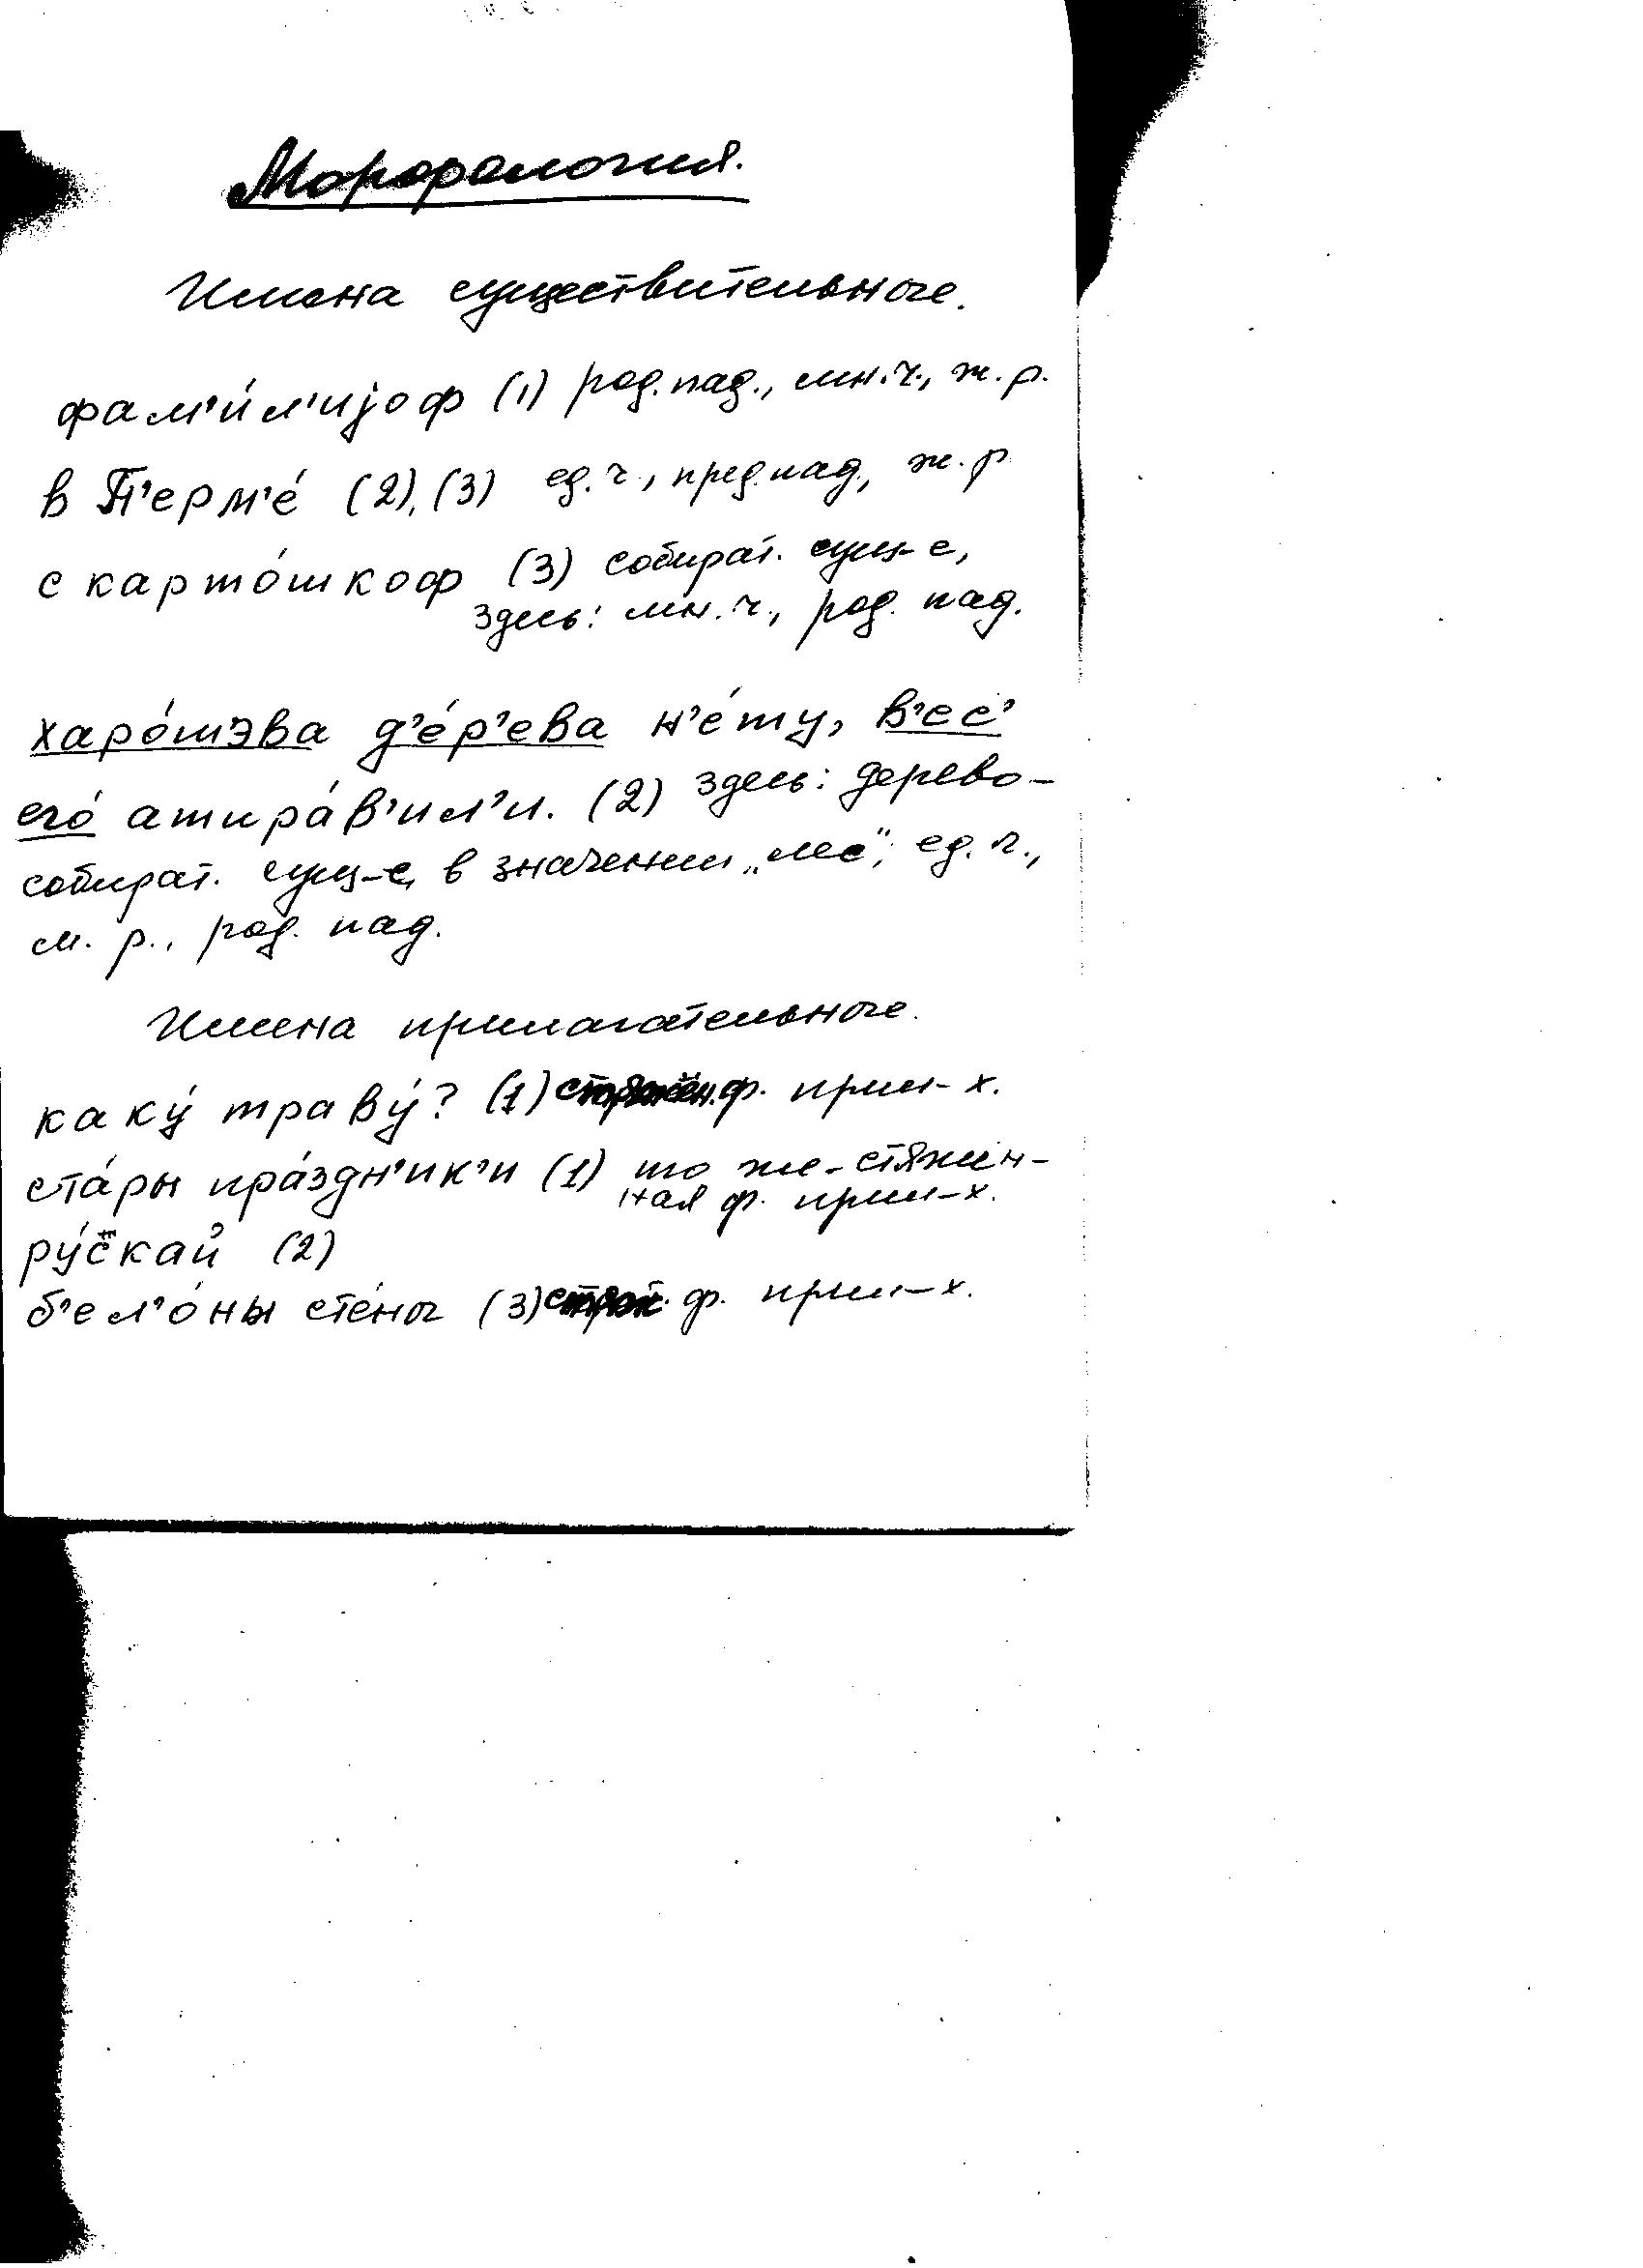 Морфология.
Имена существительные.
фам'и́л'иjоф (1) род. пад., мн. ч., ж. р.
в П'ерм'е́ (2), (3) ед. ч., пред. пад., ж. р
с карто́шкоф (3) собират. сущ-е,
здесь: мн. ч., род. пад.
харо́шэва д'е́р'ева н'е́ту, в'ес'
его́ атпра́в'ил'и. (2) здесь: дерево-
собират. сущ-е, в значении „лес", ед. ч.,
м. р., род. пад.
Имена прилагательные.
каку́ траву́? (1) стяжён. ф. прил-х.
ста́ры пра́здн'ик'и (1) то же - стяжён-
ная ф. прил-х.
ру́скай (2)
б'ел'о́ны сте́ны (3) стяж. ф. прил-х.